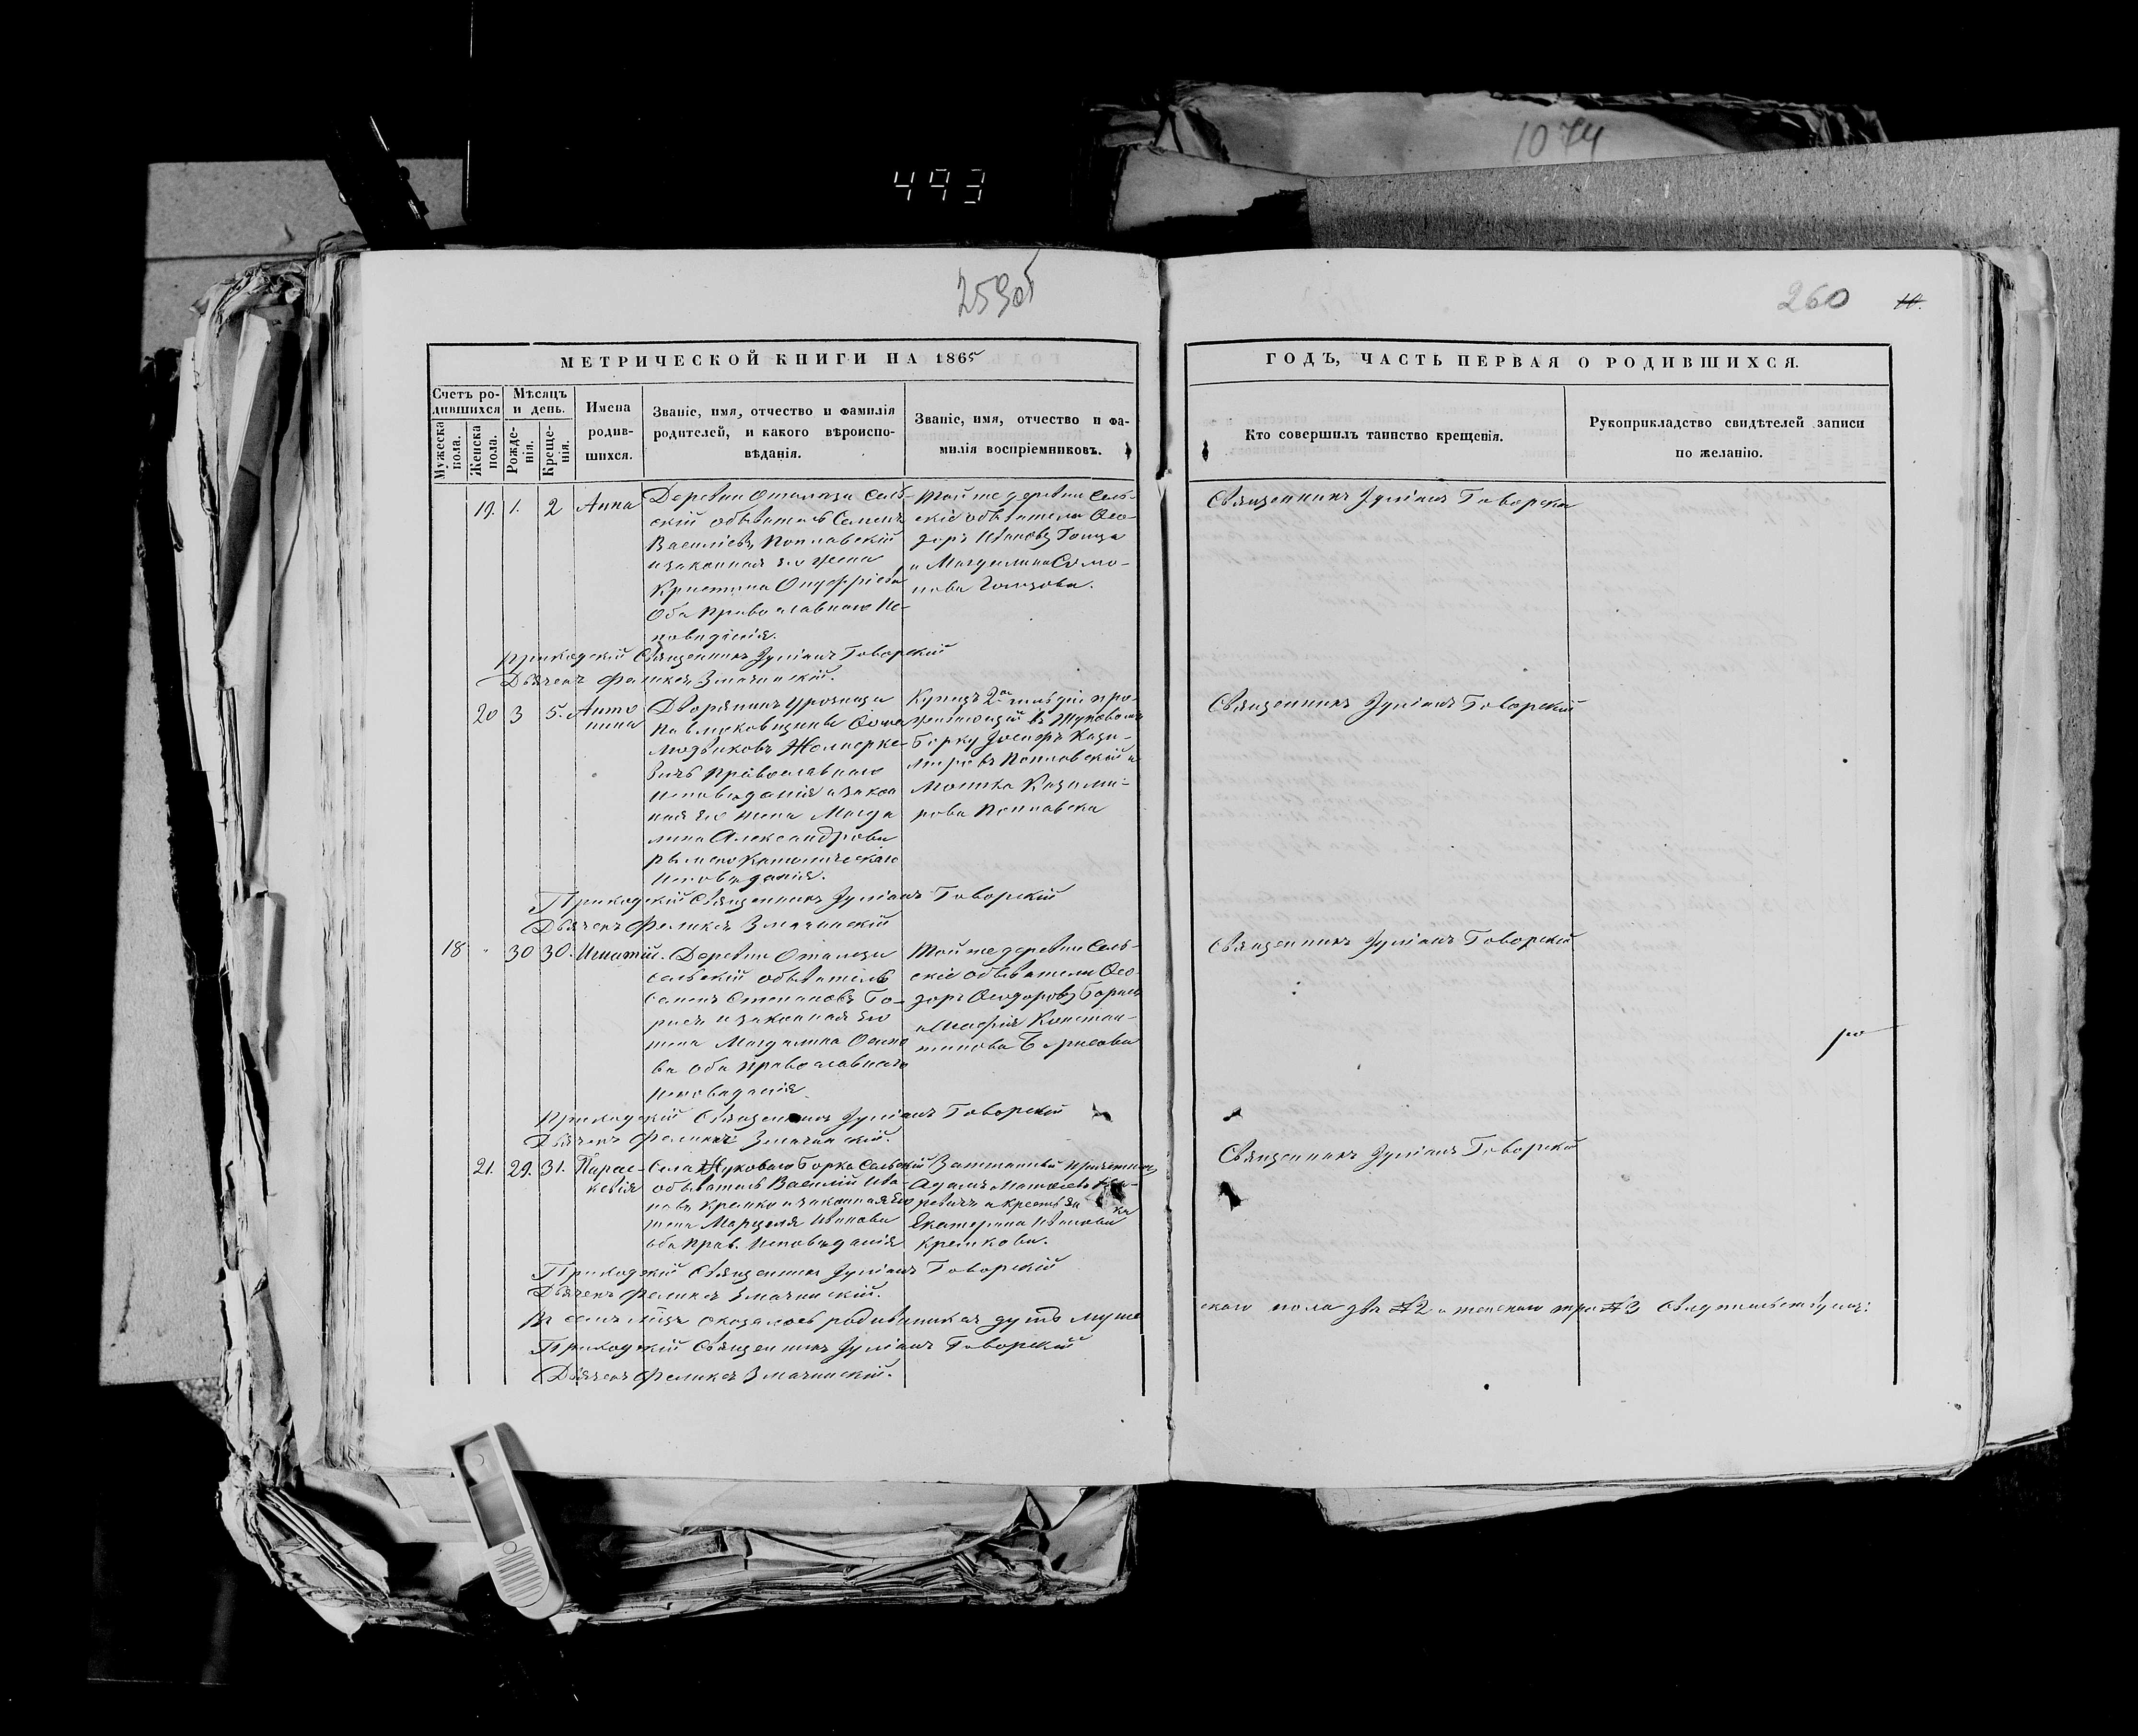 1074
493
259об
260
10.
МЕТРИЧЕСКОЙ КНИГИ НА 1865
ГОДЪ, ЧАСТЬ ПЕРВАЯ О РОДИВШИХСЯ.
Счетъ ро-
дившихся
Мужеска
пола.
Женска
пола.
Мѣсяцъ
и день.
Рожде-
нія.
Креще-
нія.
Имена
родив-
шихся.
Званіе, имя, отчество и фамилія
родителей, и какого вѣроиспо-
вѣданія.
Званіе, имя, отчество и фа-
милія воспріемниковъ.
Кто совершилъ таинство крещенія.
Рукоприкладство свидѣтелей записи
по желанію.
19. 1. 2 Анна
Деревни Сель-
скій обыватель Семенъ
Василіевъ Поплавскій
и законная его жена
Кристина Онуфріева
Оба Православнаго Ис-
поведанія.
Той же деревни Сель-
скіе обыватели Ѳео-
доръ Ивановъ
и Магдалина Симо-
нова
Священникъ Іуліанъ Говорскій
Приходскій Священникъ Іуліанъ Говорскій
Дьячекъ Феликсъ Змачинскій.
20 3 5. Анто
нина
Дворянинъ урочища
Православнаго
Исповеданія и закон
ная его жена Магда
лина Александрова
Римско Католическаго
Исповеданія.
Купецъ 2ой гильдіи про-
живающій въ Жуковомъ
Борку Іосифъ Кази-
міровъ Поплавскій и
Казими-
рова Поплавска
Священникъ Іуліанъ Говорскій
Приходскій Священникъ Іуліанъ Говорскій
Дьячекъ Феликсъ Змачинскій
18 " 30 30. Игнатій.
Деревни
сельскій обыватель
Семенъ Степановъ Бо-
рисъ и законная его
жена Магдалина Осипо
ва оба Православнаго
Исповеданія.
Той же деревни Сель-
скіе обыватели Ѳео-
доръ Ѳеодоровъ Борисъ
и Констан-
тинова Борисова
Священникъ Іуліанъ Говорскій
Приходскій Священникъ Іуліанъ Говорскій
Дьячекъ Феликсъ Змачинскій.
21. 29. 31. Парас-
кевія
Села Жуковаго Борка Сельскій
обыватель Василій Ива-
новъ Крешко и законная его
жена Марцеля Иванова
оба Прав. Исповеданія
Адамъ
Екатерина Иванова
Крешкова.
Священникъ Іуліанъ Говорскій
Приходскій Священникъ Іуліанъ Говорскій
Дьячекъ Феликсъ Змачинскій.
Въ семъ м-цѣ оказалось родившихся душъ муже
скаго пола два #2 и женскаго три #3 свидетельствуемъ:
Приходскій Священникъ Іуліанъ Говорскій
Дьячекъ Феликсъ Змачинскій.